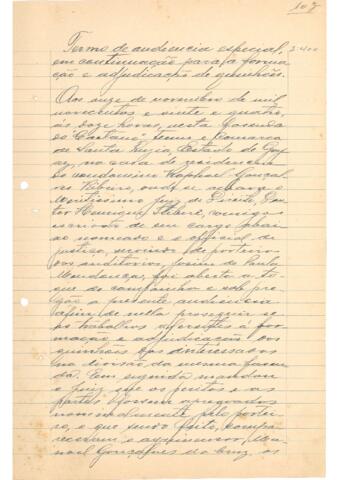 107
Termo de audiencia especial, 3.400
em continuação para a forma
ção e adjudicação de quinhões.
Aos onze de novembro de mil
novecentos e vinte e quatro,
ás doze horas, nesta fazenda
do "Caetano" termo e Comarca
de Santa Luzia, Estado de Goy
az, na casa de residencia
do condomino Raphael Gonçal
ves Ribeiro, onde se achava o
Meritissimo Juiz de Direito, Dou
tor Henrique, comigo
escrivão de seu cargo abai
xo nomeado e o official de
justiça, servindo de porteiro
dos auditorios, de Paula
Mendonça, foi aberta a to
que de campainha e sob pre
gão a presente audiencia
afim de nella proseguir se
os trabalhos referentes á for
mação e adjudicação dos
quinhões dos interessados
na divisão da mesma fazen
da. Em seguida mandou
o juiz que os peritos e as
partes fossem apregoados
nominalmente, pelo portei
ro, o que sendo feito, compa
receram o agrimensor, Ma
noel Gonçalves da Cruz, os